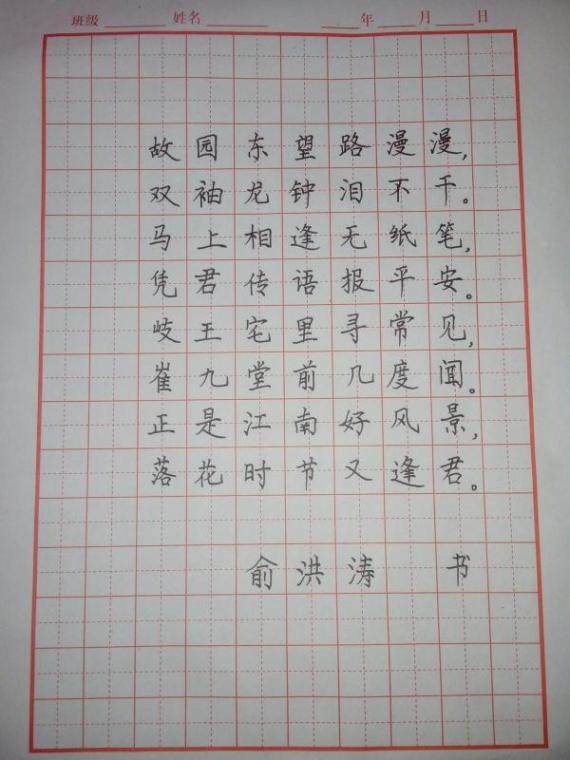 班级 姓名 年 月 日
故园东望路漫漫,
双袖龙钟泪不干。
马上相逢无纸笔,
凭君传语报平安。
岐王宅里寻常见,
崔九堂前几度闻。
正是江南好风景,
落花时节又逢君。
俞洪涛 书